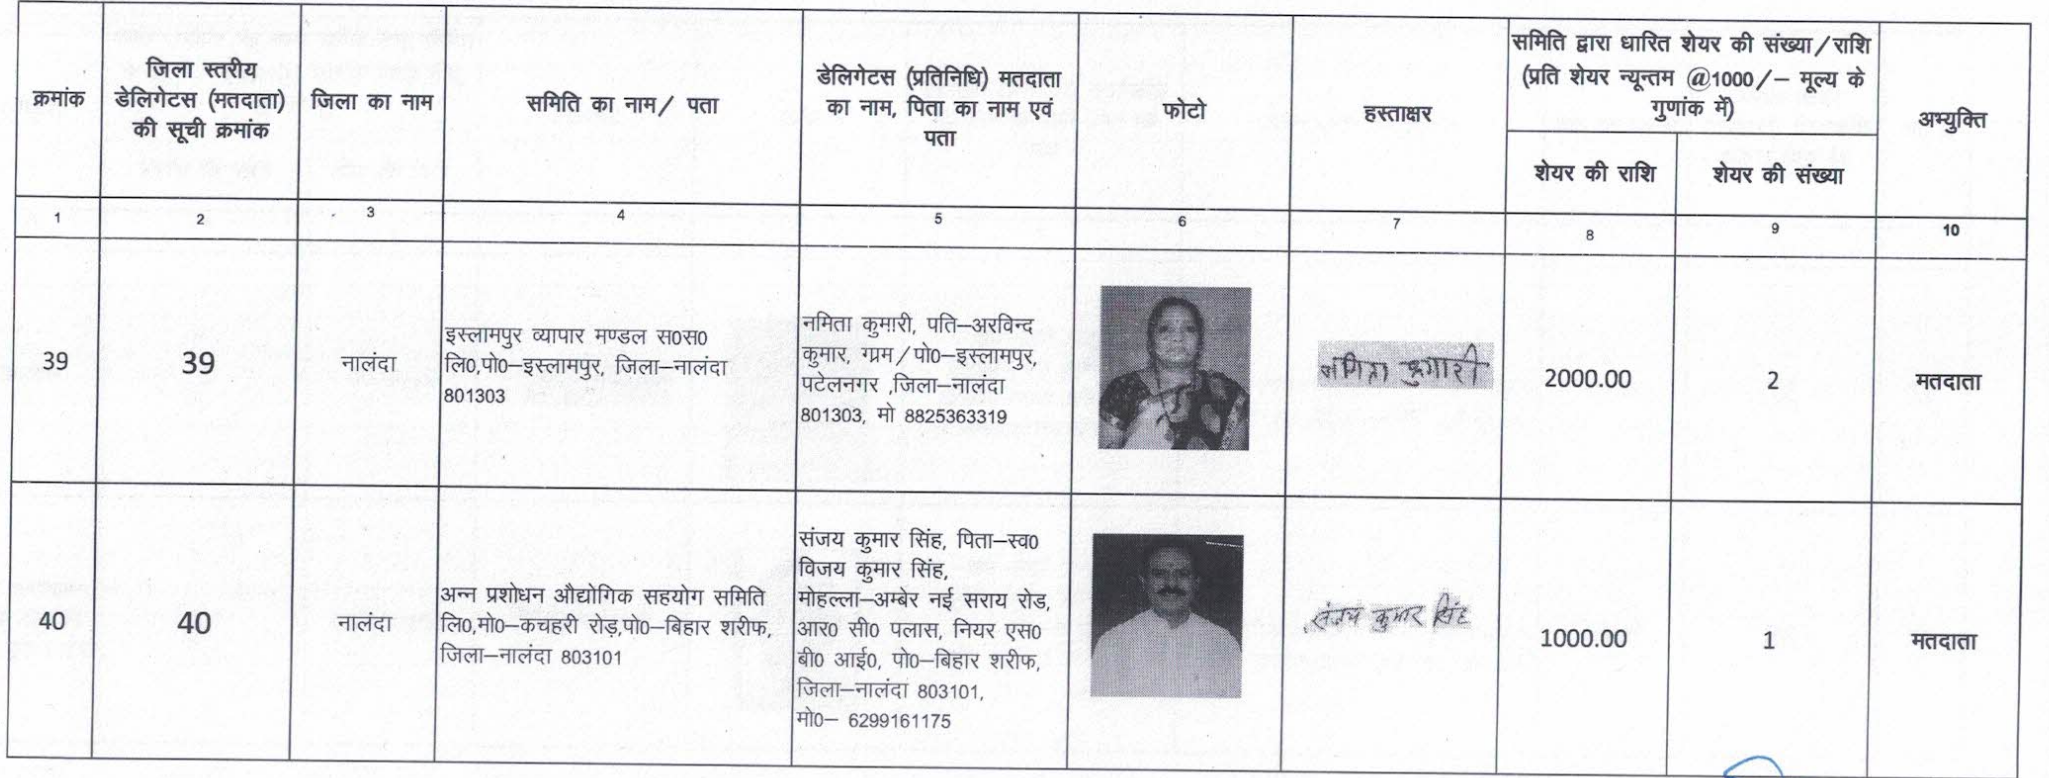 क्रमांक
जिला स्तरीय
डेलिगेटस (मतदाता)
की सूची क्रमांक
जिला का नाम
समिति का नाम/ पता
डेलिगेटस (प्रतिनिधि) मतदाता
का नाम, पिता का नाम एवं
पता
फोटो
हस्ताक्षर
समिति द्वारा धारित शेयर की संख्या/राशि
(प्रति शेयर न्यून्तम @1000/– मूल्य के
गुणांक में)
शेयर की राशि
शेयर की संख्या
अभ्युक्ति
1
2
3
4
5
6
7
8
9
10
39
39
नालंदा
इस्लामपुर व्यापार मण्डल स0स0
लि0,पो0–इस्लामपुर, जिला–नालंदा
801303
नमिता कुमारी, पति–अरविन्द
कुमार, ग्रम/पो0–इस्लामपुर,
पटेलनगर ,जिला–नालंदा
801303, मो 8825363319
नमिता कुमारी
2000.00
2
मतदाता
40
40
नालंदा
अन्न प्रशोधन औद्योगिक सहयोग समिति
लि0,मो0–कचहरी रोड़,पो0–बिहार शरीफ,
जिला–नालंदा 803101
संजय कुमार सिंह, पिता–स्व0
विजय कुमार सिंह,
मोहल्ला–अम्बेर नई सराय रोड,
आर0 सी0 पलास, नियर एस0
बी0 आई0, पो0–बिहार शरीफ,
जिला–नालंदा 803101,
मो0– 6299161175
संजय कुमार सिंह
1000.00
1
मतदाता